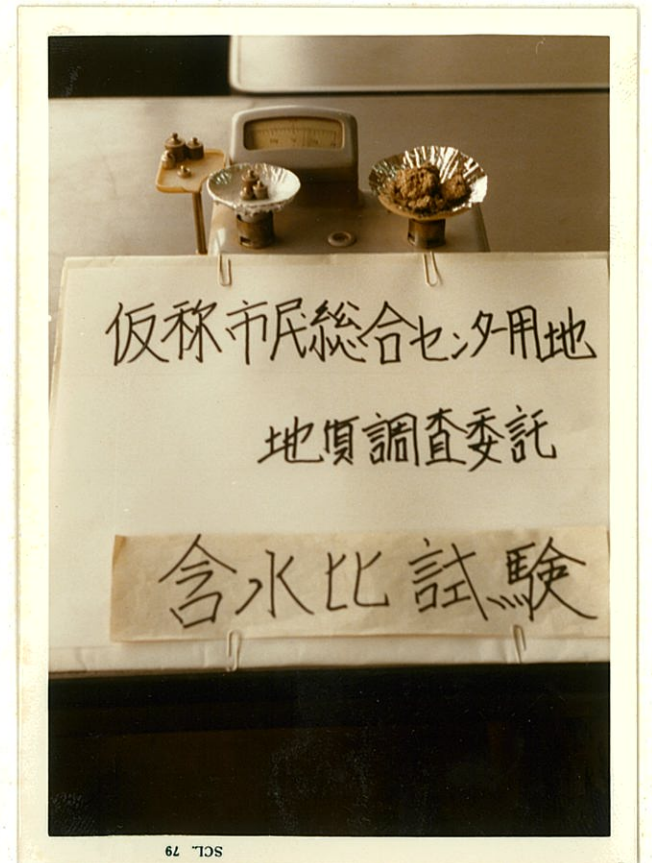 仮称市民総合センター用地
地質調査委託
含水比試験
SCL. 79